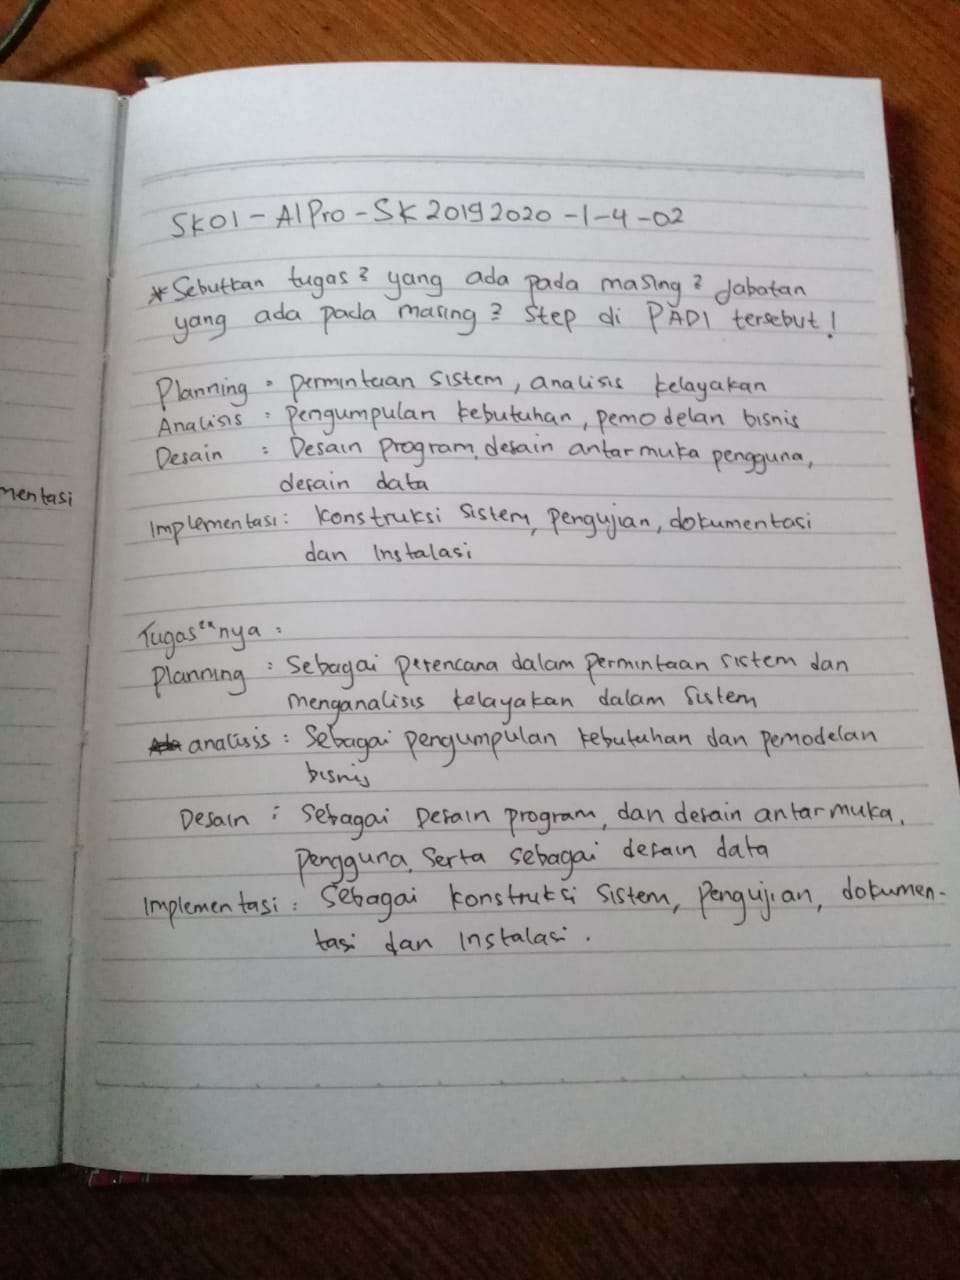 mentasi
SK01 - AlPro - SK 2019 2020 - 1 - 4 - 02
* Sebutkan tugas2 yang ada pada masing2 Jabatan
yang ada pada masing2 Step di PADI tersebut!
Planning : permintaan sistem, analisis kelayakan
Analisis : Pengumpulan kebutuhan, pemodelan bisnis
Desain : Desain program, desain antarmuka pengguna,
desain data
Implementasi : Konstruksi sistem, pengujian, dokumentasi
dan Instalasi
Tugas"nya :
Planning : Sebagai perencana dalam permintaan sistem dan
menganalisis kelayakan dalam sistem
analisis : Sebagai pengumpulan kebutuhan dan pemodelan
bisnis
Desain : Sebagai Desain program, dan desain antarmuka,
pengguna, Serta sebagai desain data
Implementasi : Sebagai konstruksi sistem, pengujian, dokumen-
tasi dan instalasi.